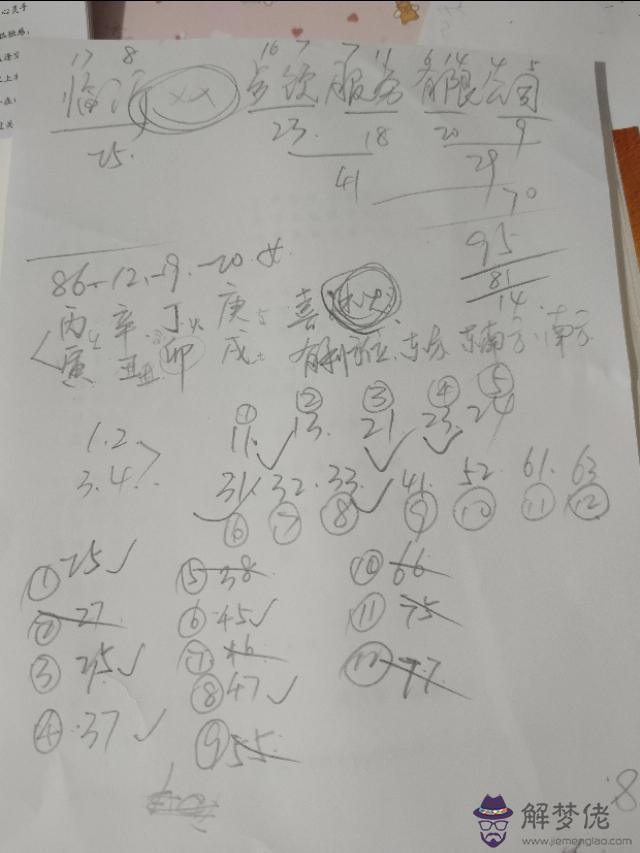 17 8 16 7 7 11 6 14 4 5
临沂 XX 餐饮服务有限公司
25. 23. 18 20 9
41 29
70
95
86-12-9-20 女
81
14
丙 辛 丁火 庚 喜 木火
寅 丑 卯 戌土 有利方位: 东方、东南方、南方
① ② ③ ④ ⑤
1.2 11. 13. 21 23. 24
3.4 31. 32. 33. 41. 52. 61. 63
⑥ ⑦ ⑧ ⑨ ⑩ ⑪ ⑫
① 25 ⑤ 38 ⑩ 66
② 27 ⑥ 45 ⑪ 75
③ 35 ⑦ 46 ⑫ 77
④ 37 ⑧ 47
⑨ 55
8
解梦佬
www.jiemenglao.com